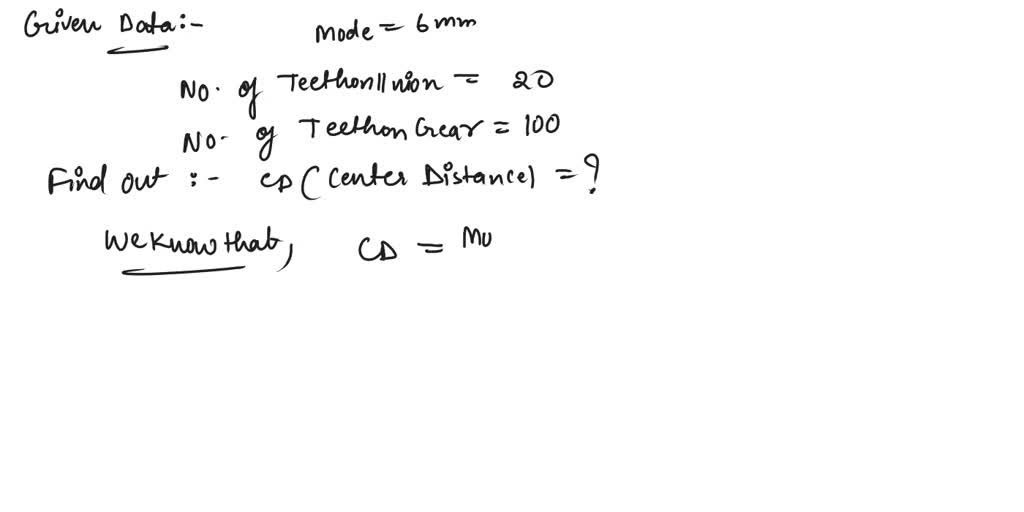 Given Data:-
Mode = 6mm
No. of TeethonIInion = 20
No. of Teethon Gear = 100
Find out :- CD (Center Distance) = ?
We know that, CD = Mu